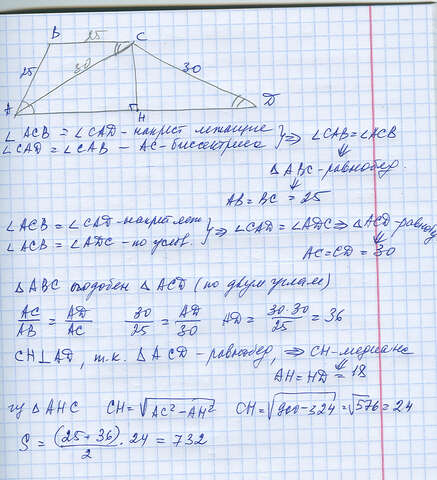 B 25 C
25 30 30
A H D
∠ACB = ∠CAD - накрест лежащие
∠CAD = ∠CAB - AC - биссектриса } ⇒ ∠CAB = ∠ACB
⇓
△ABC - равнобед.
⇓
AB = BC = 25
∠ACB = ∠CAD - накрест леж
∠ACB = ∠ADC - по услов. } ⇒ ∠CAD = ∠ADC ⇒ △ACD - равнобед
⇓
AC = CD = 30
△ABC подобен △ACD (по двум углам)
AC/AB = AD/AC 30/25 = AD/30 AD = 30·30/25 = 36
CH⊥AD, т.к. △ACD - равнобед, ⇒ CH - медиана
⇓
AH = HD = 18
из △AHC CH = √AC² - AH² CH = √900 - 324 = √576 = 24
S = (25 + 36)/2 · 24 = 732